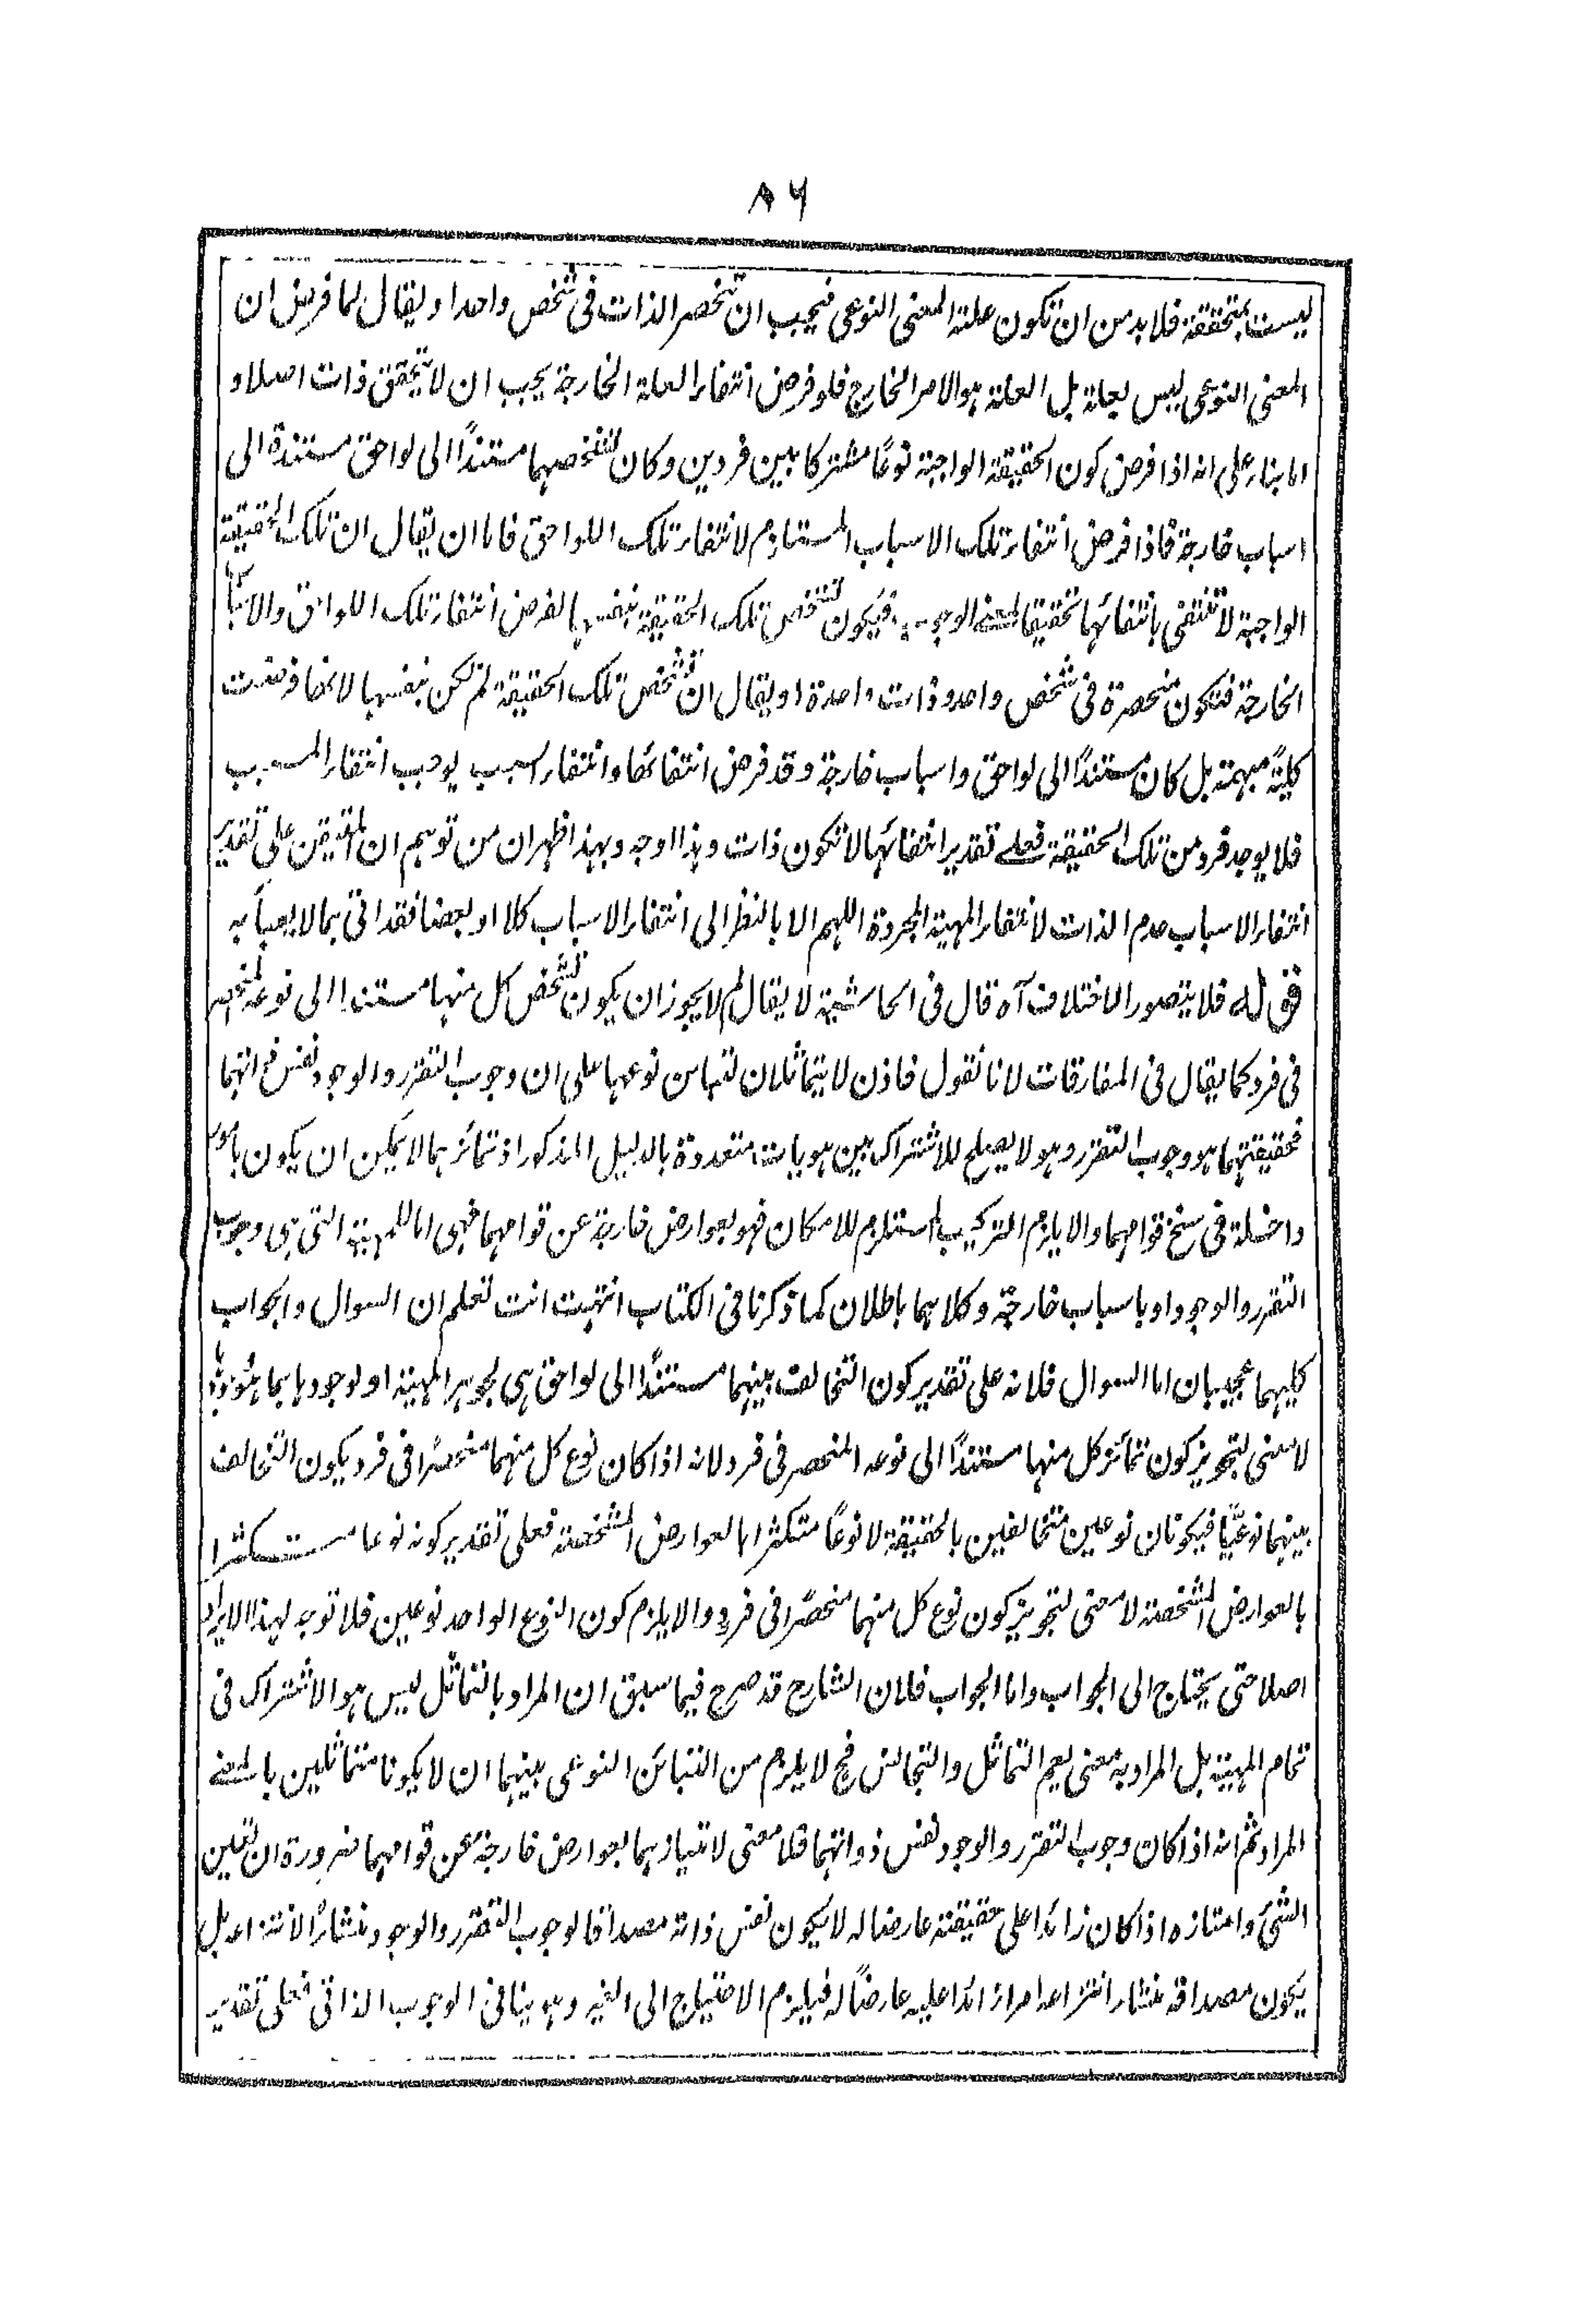 ٨٦
ليست بمتحققة فلا بد من ان تكون علته المعنى النوعى فيجب ان تنحصر الذات فى شخص واحد او يقال لما فرض ان
المعنى النوعى ليس بعلة بل العلة هو الامر الخارج فلو فرض انتفاء العلة الخارجة يجب ان لا يتحقق ذات اصلا و
اما بناء على انه اذا فرض كون الحقيقة الواجبة نوعًا مشتركا بين فردين و كان تشخصهما مستندًا الى لواحق مستندة الى
اسباب خارجة فاذا فرض انتفاء تلك الاسباب المستلزم لانتفاء تلك اللواحق فاما ان يقال ان تلك الحقيقة
الواجبة لا تنتفى بانتفائها تحقيقا لمعنى الوجوب فيكون تشخص تلك الحقيقة بنفسها لفرض انتفاء تلك اللواحق والاسباب
الخارجة فتكون منحصرة فى شخص واحد و ذات واحدة او يقال ان تشخص تلك الحقيقة لم تكن بنفسها لانها فرضت
كليةً مبهمة بل كان مستندًا الى لواحق و اسباب خارجة و قد فرض انتفائها و انتفاء السبب يوجب انتفاء المسبب
فلا يوجد فرد من تلك الحقيقة فعلى تقدير انتفائها لا تكون ذات و هذا اوجه و بهذا ظهر ان من توهم ان المتيقن على تقدير
انتفاء الاسباب عدم الذات لانتفاء المهية المجردة اللهم الا بالنظر الى انتفاء الاسباب كلا او بعضا فقد اتى بما لا يعبأ به
قوله فلا يتصور الاختلاف آه قال فى الحاشية لا يقال لم لا يجوز ان يكون تشخص كل منهما مستندا الى نوعه المنحصر
فى فرد كما يقال فى المفارقات لانا نقول فاذن لا يتماثلان لتباين نوعهما على ان وجوب التقرر والوجود نفس ذاتهما
فحقيقتهما هو وجوب التقرر و هو لا يصلح للاشتراك بين هويات متعددة بالدليل المذكور اذ تمائزهما لا يمكن ان يكون بامور
داخلة فى سنخ قوامهما والا يلزم التركيب المستلزم للامكان فهو بعوارض خارجة عن قوامهما فهى اما للمهية التى هى وجوب
التقرر والوجود او باسباب خارجة و كلاهما باطلان كما ذكرنا فى الكتاب انتهيت انت تعلم ان السوال والجواب
كليهما عجيبان اما السوال فلانه على تقدير كون التخالف بينهما مستندًا الى لواحق هى لجوهر المهية او لوجودها بما هو وجود
لا معنى لتجويز كون تمائز كل منهما مستندًا الى نوعه المنحصر فى فرد لانه اذا كان نوع كل منهما منحصرًا فى فرد يكون التخالف
بينهما نوعيًّا فيكونان نوعين متخالفين بالحقيقة لا نوعًا متكثرا بالعوارض المشخصة فعلى تقدير كونه نوعا متكثرا
بالعوارض المشخصة لا معنى لتجويز كون نوع كل منهما منحصرًا فى فرد والا يلزم كون النوع الواحد نوعين فلا توجه لهذا الايراد
اصلا حتى يحتاج الى الجواب واما الجواب فلان الشارح قد صرح فيما سبق ان المراد بالتماثل ليس هو الاشتراك فى
تمام المهية بل المراد به معنى يعم التماثل والتجانس فح لا يلزم من التبائن النوعى بينهما ان لا يكونا متماثلين بالمعنى
المراد ثم انه اذا كان وجوب التقرر والوجود نفس ذواتهما فلا معنى لامتيازهما بعوارض خارجة عن قوامهما ضرورة ان تعين
الشئ و امتيازه اذا كان زائدا على حقيقته عارضا له لا يكون نفس ذاته مصداقا لوجوب التقرر والوجود و منشأ لانتزاعه بل
يكون مصداقه و منشاء انتزاعه امرا زائدا عليه عارضًا له فيلزم الاحتياج الى الغير و هو ينافى الوجوب الذاتى فعلى تقدير